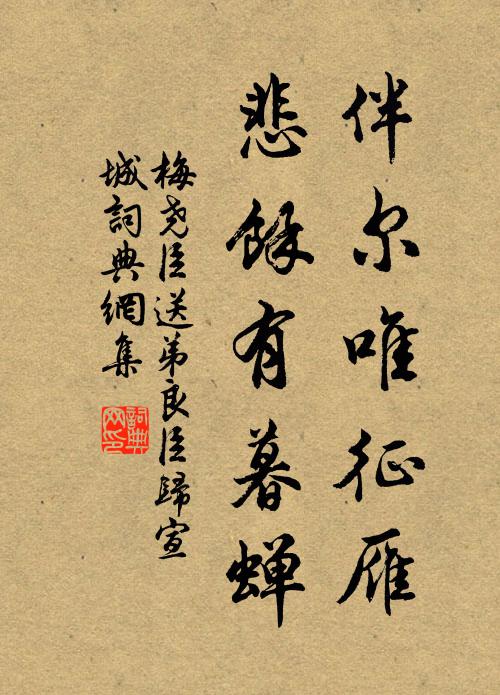 伴尔唯征雁
悲餘有暮蝉
梅尧臣送弟良臣歸宣
城詞典網集
詞典网印